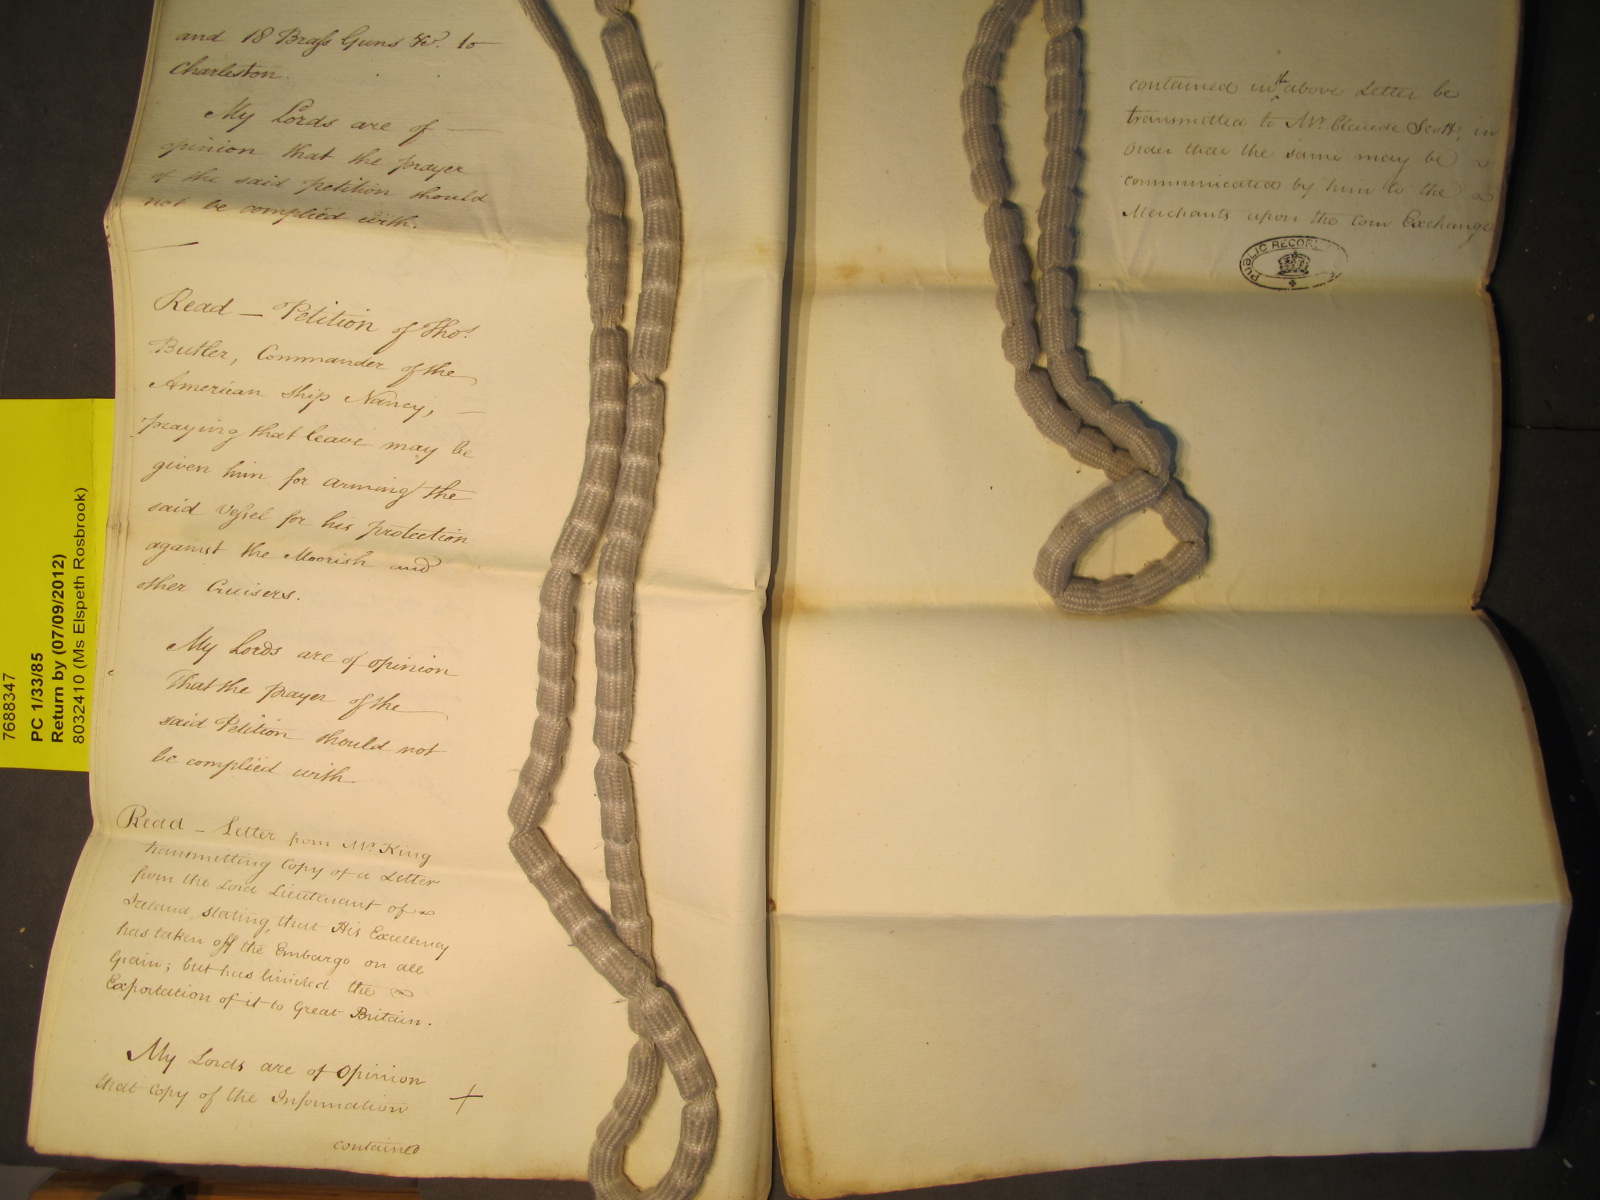 and 18 Brass Guns &c. to
Charleston.
My Lords are of
opinion that the prayer
of the said petition should
not be complied with.
Read – Petition of Thos.
Butler, Commander of the
American Ship Nancy,
praying that leave may be
given him for arming the
said Vessel for his protection
against the Moorish and
other Cruisers.
My Lords are of opinion
that the prayer of the
said Petition should not
be complied with.
Read – Letter from Mr. King
transmitting Copy of a Letter
from the Lord Lieutenant of
Ireland, stating, that His Excellency
has taken off the Embargo on all
Grain; but has limited the
Exportation of it to Great Britain.
My Lords are of Opinion
that Copy of the Information
contained
contained in the above Letter be
transmitted to Mr. Claude Scott, in
order that the same may be
communicated by him to the
Merchants upon the Corn Exchange
PUBLIC RECORD
7688347
PC 1/33/85
Return by (07/09/2012)
8032410 (Ms Elspeth Rosbrook)